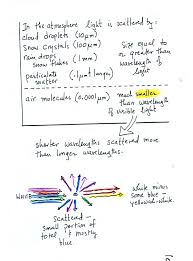 In the atmosphere light is scattered by:
cloud droplets (10 μm)
snow crystals (100 μm)
rain drops (1 mm)
snow flakes
particulate matter (.1 μm + larger)
Size equal to
or greater than
wavelength of
light
air molecules (0.0001 μm)
much smaller
than wavelength
of visible light
shorter wavelengths scattered more
than longer wavelengths.
WHITE
white minus
some blue =
yellowish-white
Scattered -
small portion of
total & mostly
blue